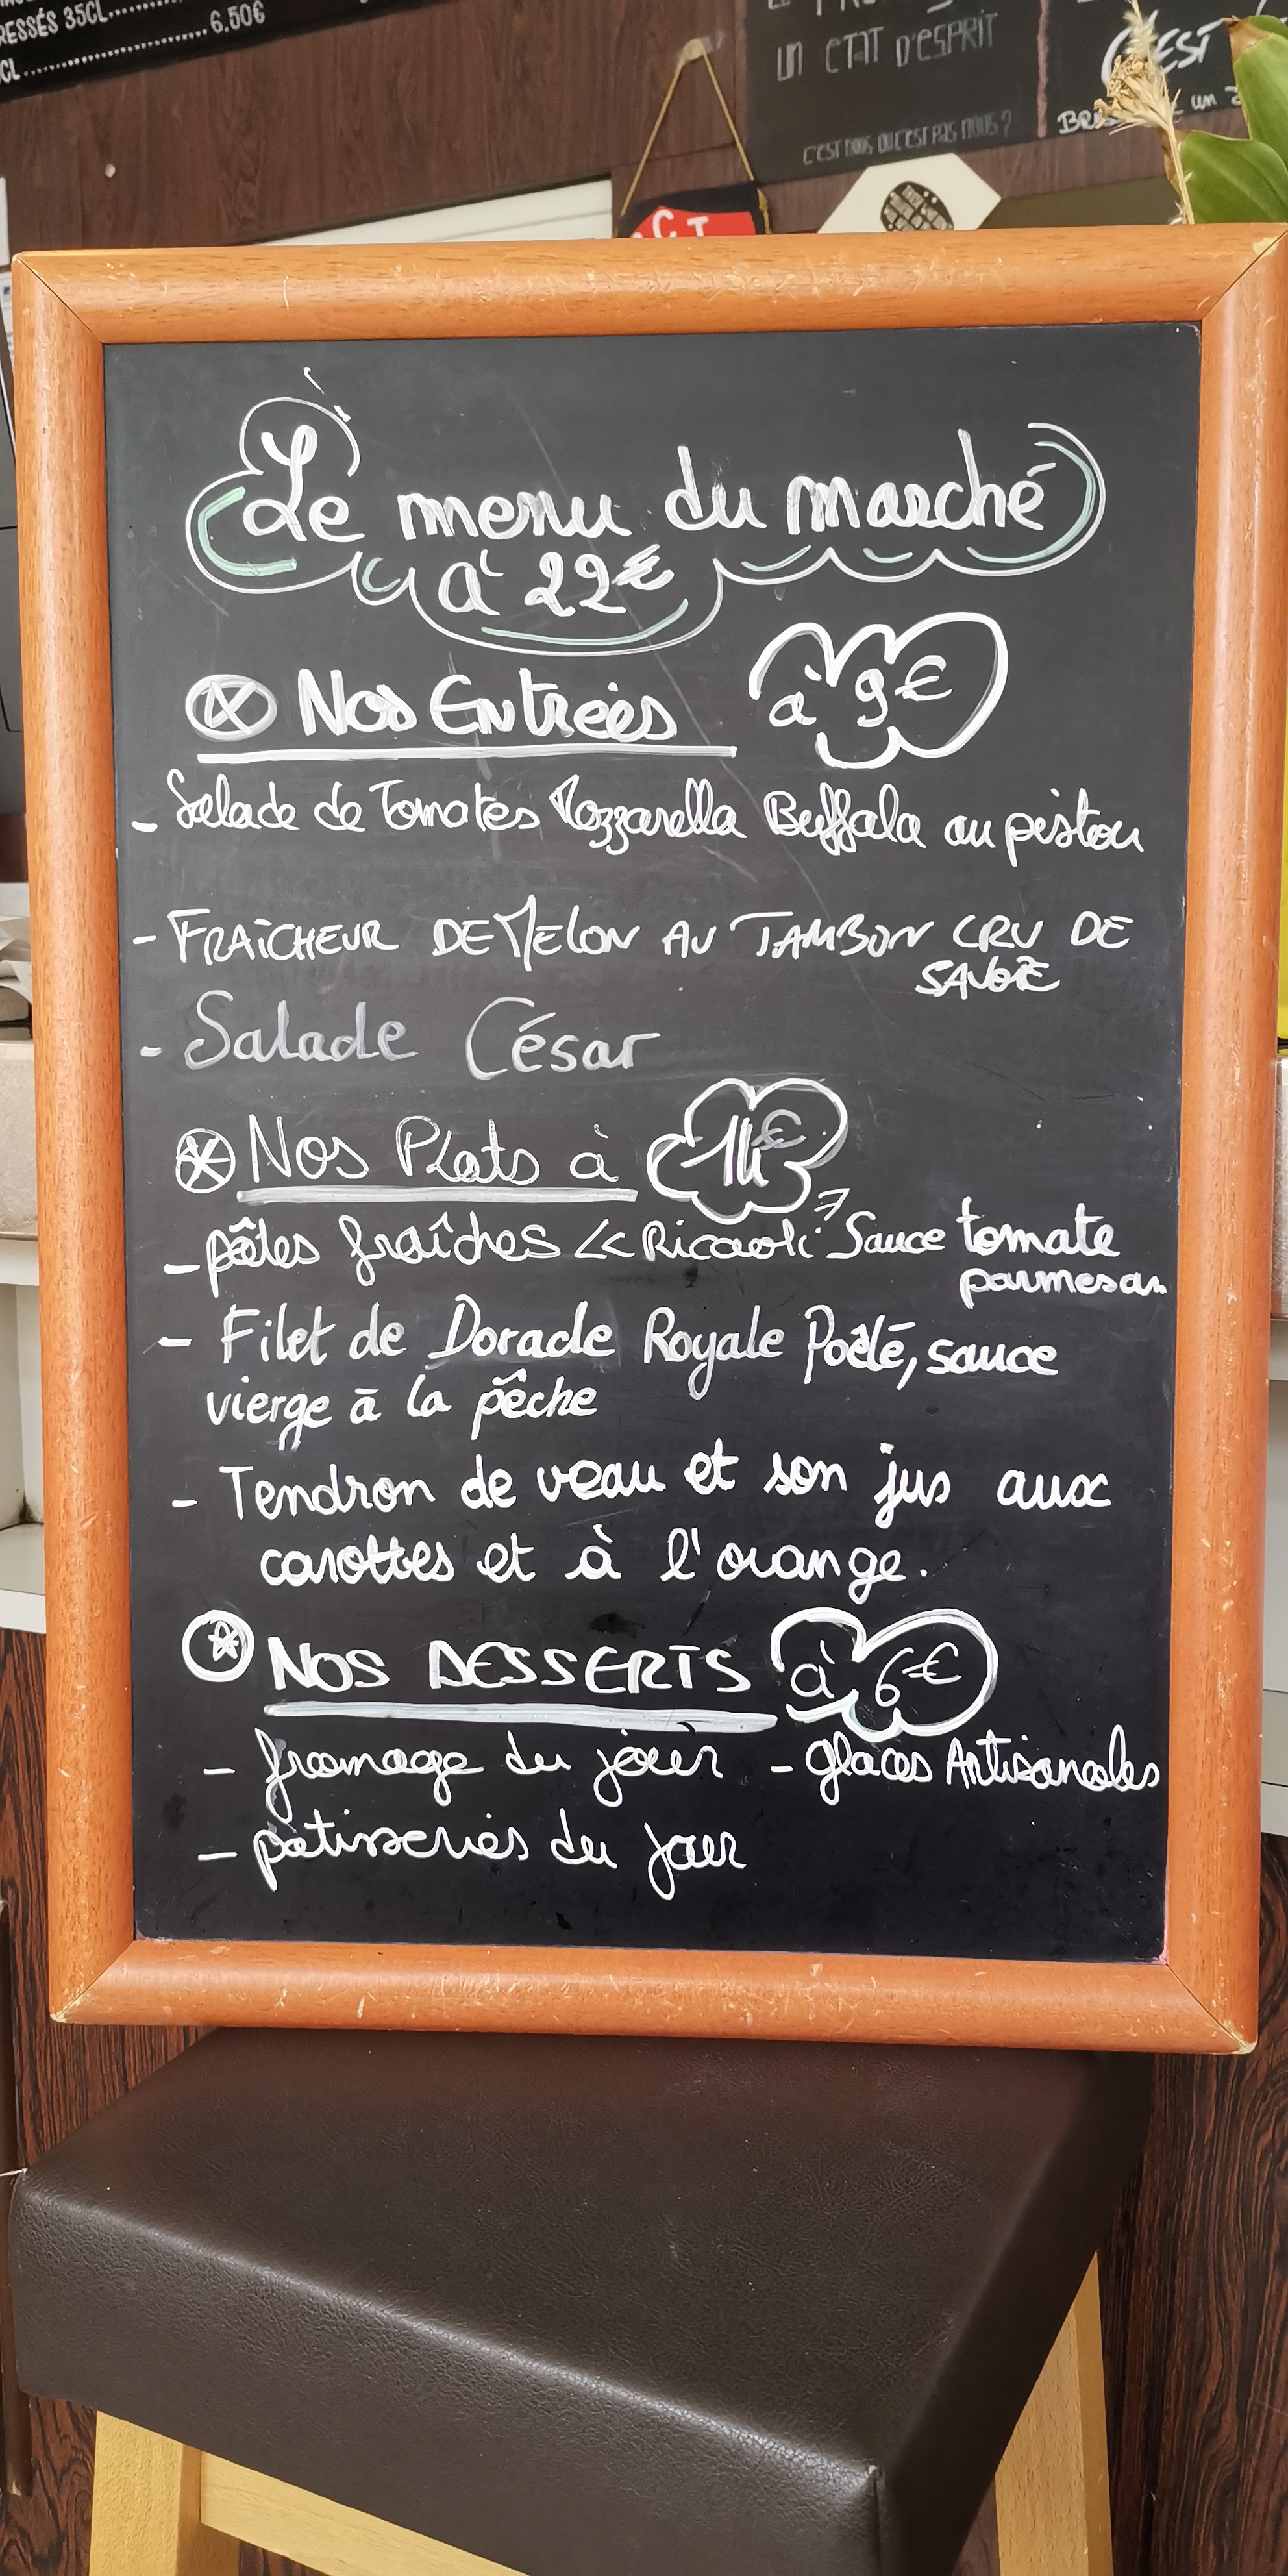 RESSÉS 35CL..............6,50€
CL
UN ETAT D'ESPRIT
C'EST NOUS OU C'EST PAS NOUS ?
C'EST
un
CT
Le menu du marché
à 22€
Nos Entrées à 9€
- Salade de Tomates Mozzarella Buffala au pistou
- FRAÎCHEUR DE MELON AU JAMBON CRU DE
SAVOIE
- Salade César
Nos Plats à 14€
- pâtes fraîches << Riccioli >> Sauce tomate
parmesan
- Filet de Dorade Royale Poêlé, sauce
vierge à la pêche
- Tendron de veau et son jus aux
carottes et à l'orange.
NOS DESSERTS à 6€
- fromage du jour - glaces Artisanales
- patisseries du jour